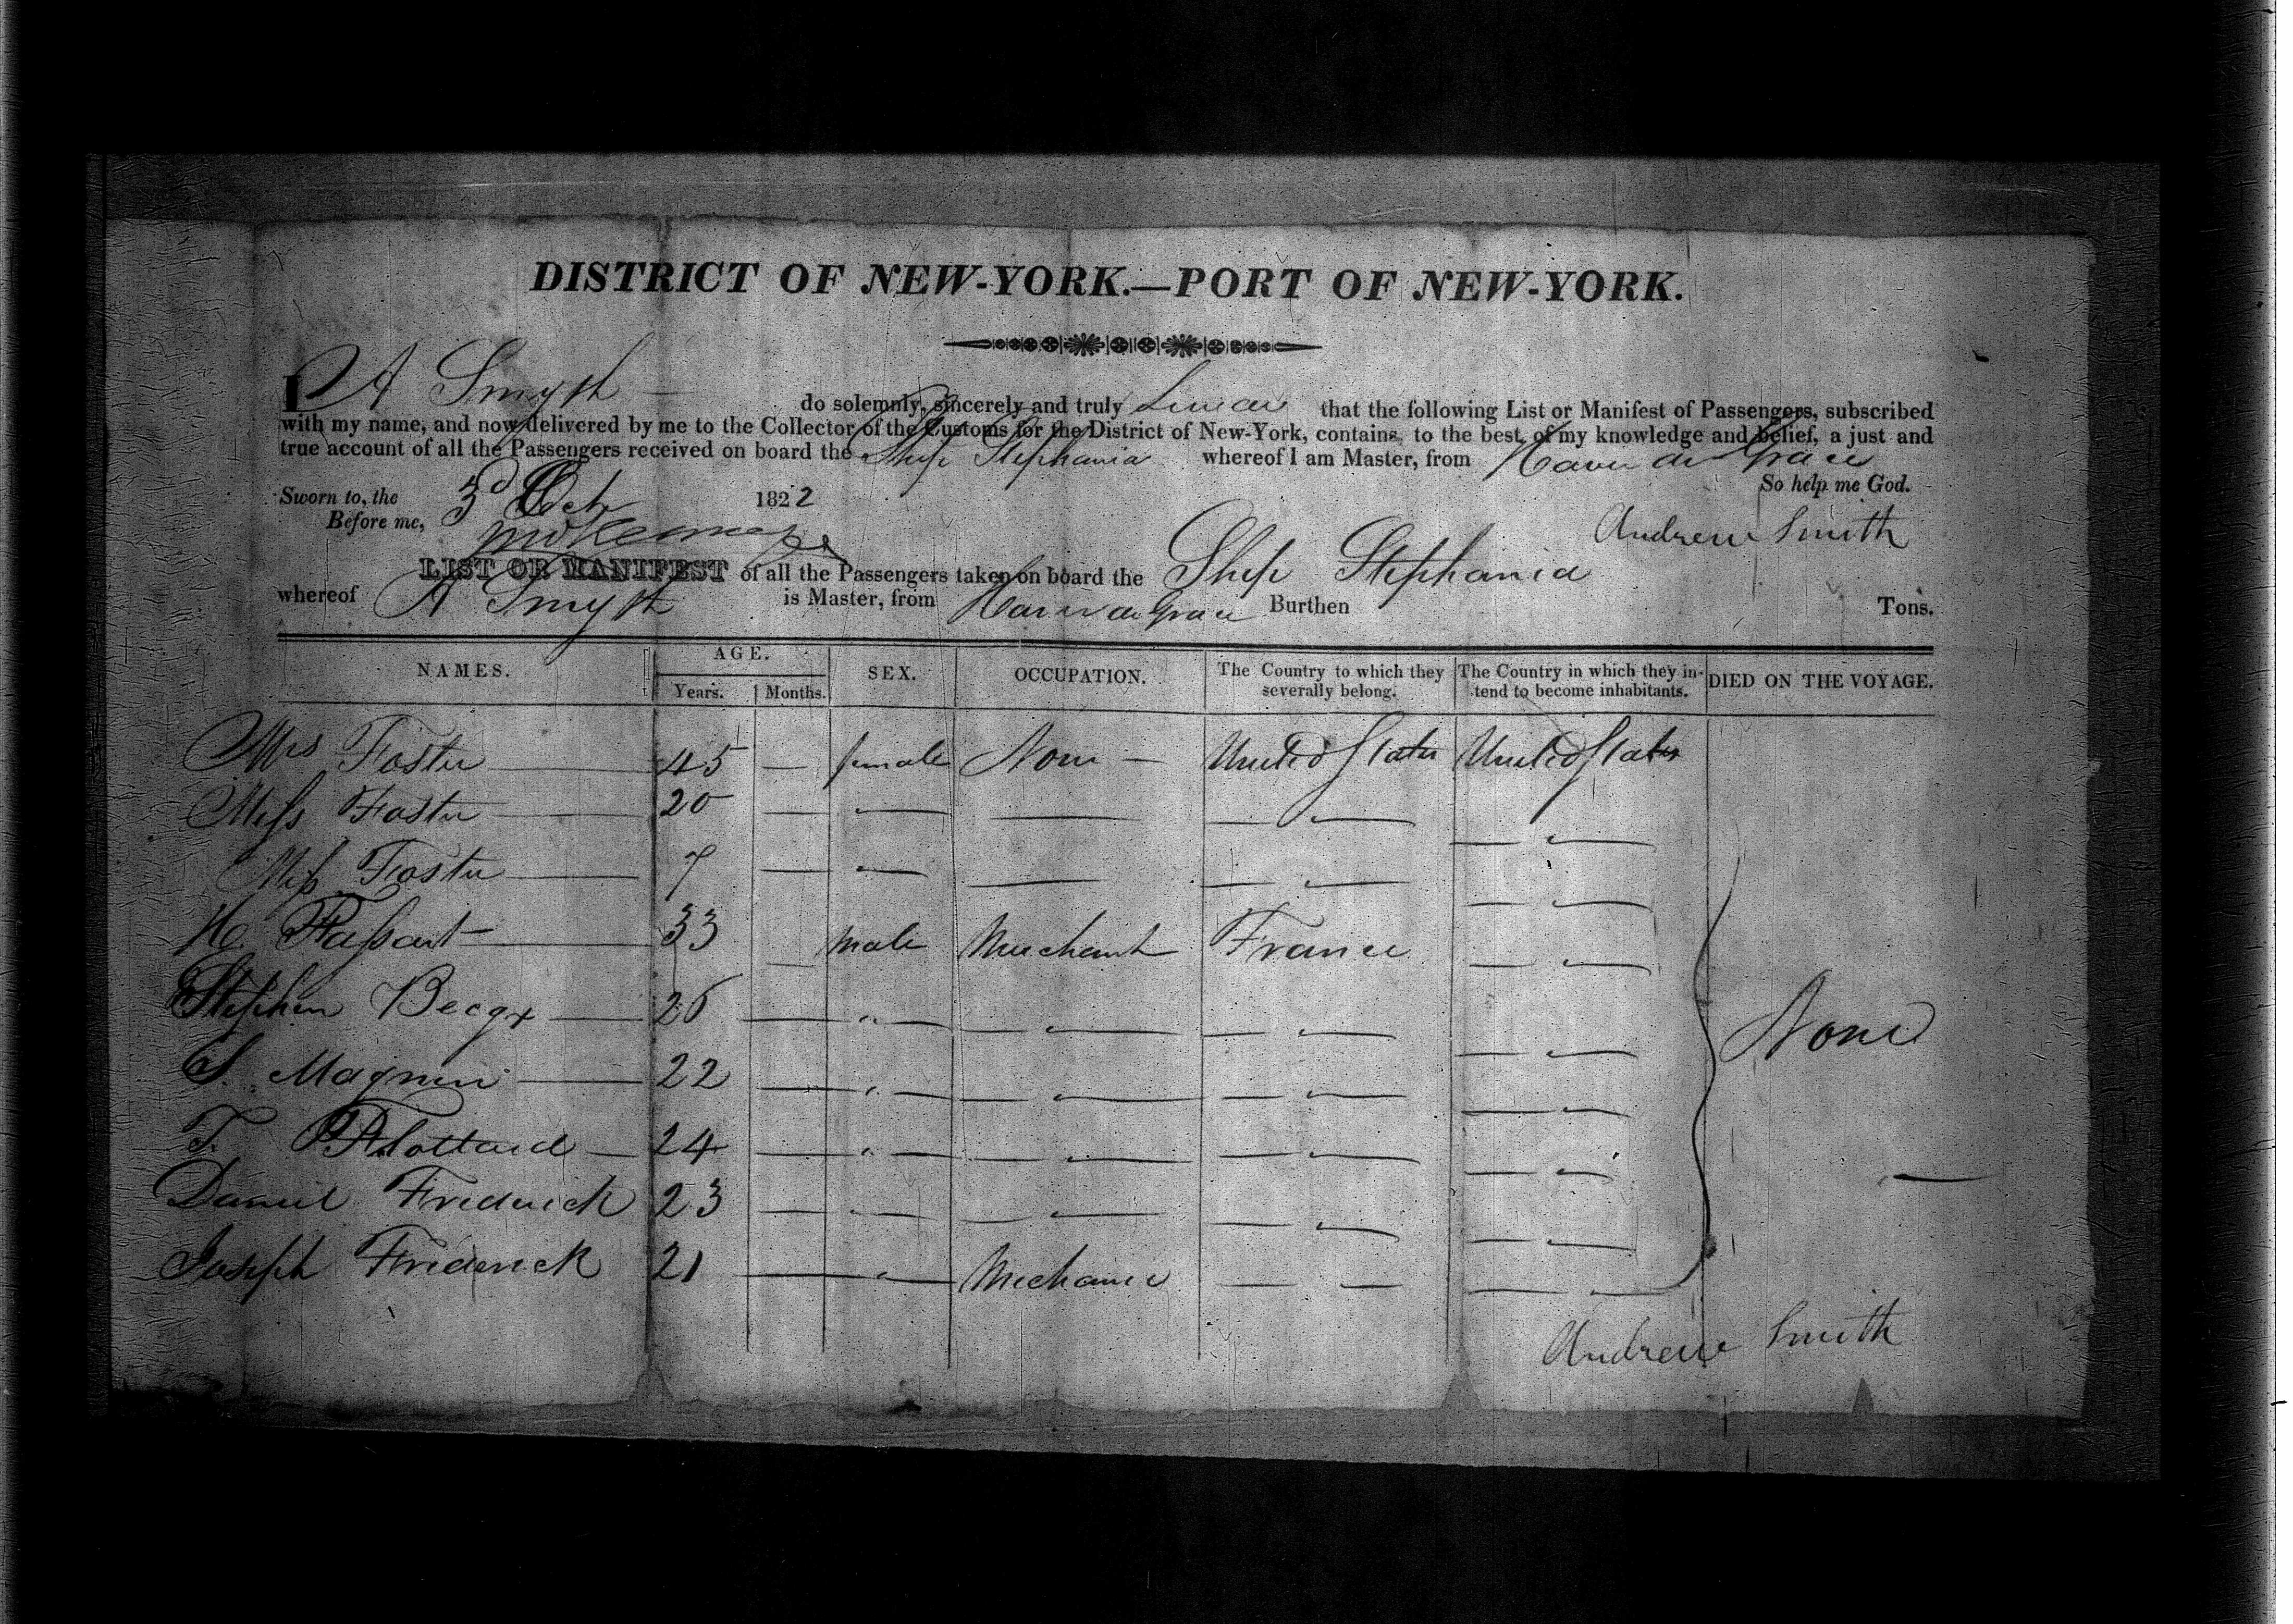 DISTRICT OF NEW-YORK.—PORT OF NEW-YORK.
I A Smyth do solemnly, sincerely and truly Swear that the following List or Manifest of Passengers, subscribed
with my name, and now delivered by me to the Collector of the Customs for the District of New-York, contains, to the best of my knowledge and belief, a just and
true account of all the Passengers received on board the Ship Stephania whereof I am Master, from Havre de Grace
So help me God.
Sworn to, the 3d Oct 1822
Before me,
Andrew Smith
LIST OR MANIFEST of all the Passengers taken on board the Ship Stephania
whereof A Smyth is Master, from Havre de Grace Burthen Tons.
NAMES. AGE. Years. Months. SEX. OCCUPATION. The Country to which they severally belong. The Country in which they intend to become inhabitants. DIED ON THE VOYAGE.
Mrs Foster — 45 — female None — United States United States
Miss Foster — 20 — — — — " — — " —
Miss Foster — 7 — — — — " — — " —
33 male Merchant France — " —
Stephen — 26 — " — — " — — " — — " —
S. Magnin — 22 — " — — " — — " — — " —
T. — 24 — " — — " — — " — — " —
Daniel Frederick 23 — " — — " — — " — — " —
Joseph Frederick 21 — " — Mechanic — — — " —
None
Andrew Smith